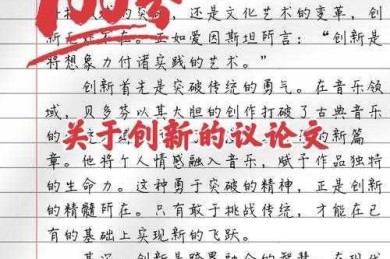 100分
的突破，还是文化艺术的变革，创
新 不在。正如爱因斯坦所言：“创新是
将想象力付诸实践的艺术。”
创新首先是突破传统的勇气。在音乐领
域，贝多芬以其大胆的创作打破了古典音乐
关于创新的议论文
的新篇
章。他将个人情感融入音乐，赋予作品独特
的生命力。这种勇于突破的精神，正是创新
的精髓所在。只有敢于挑战传统，才能在已
有的基础上实现新的飞跃。
其次，创新是跨界融合的智慧。在现代